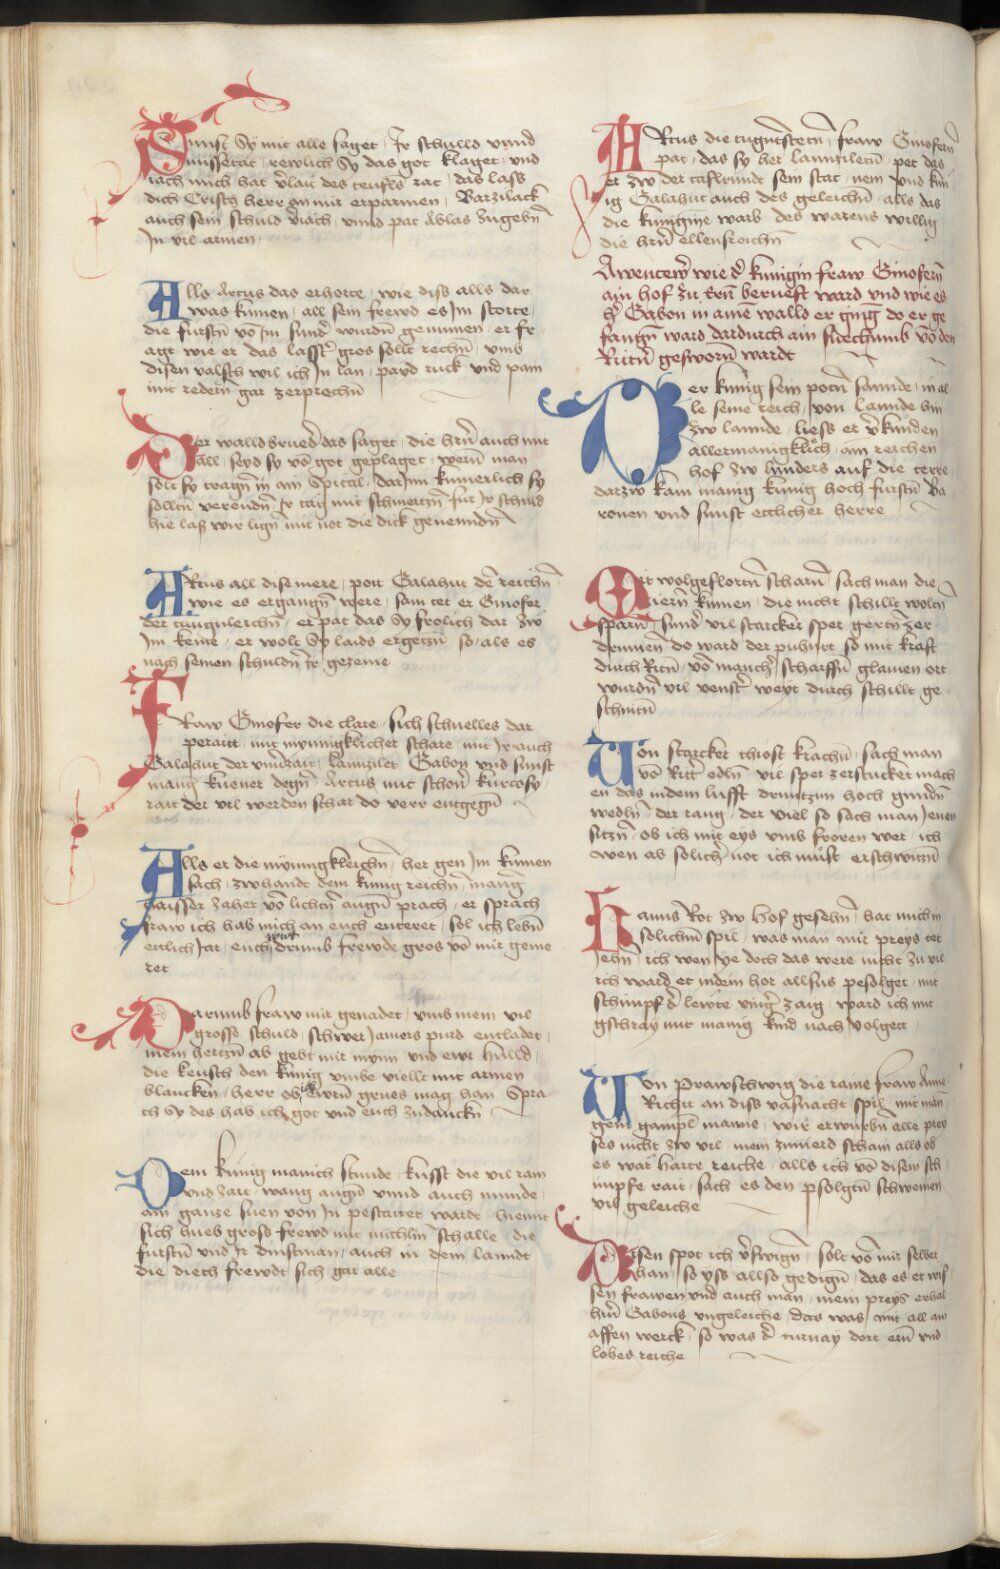 Sunst Sy mit alle saget / Jr schulld vnnd
missetat / rewlich Sy das got klaget / vnd
iach mich hat v̄lait des teufels rat / das lass
dich Cristꝫ herr an mir erparmen / Barzilack
auch sein schuld viach / vnnd pat Ablas zugebn̄
Jn vil armen /
Alls Artus das erhorte / wie diss alls dar
was kumen / all sein frewd es Jm storte /
die furstn̄ vō Jm sund wurdn̄ genumen / er fr
agt wie er das lasst gros sollt rechn̄ / vmb
disen valsch wil ich Jn lan / payd ruck vnd pain
mit redern gar zerprechn̄
Der walldbrueder das saget / die hrn̄ auch mit
all / seyd sy vō got geplaget / wern̄ man
sollt sy tragn̄ in ain Spital / darJnn kumerlich sy
solltn̄ verendn̄ Jr tag mit schmertzn̄ fur Jr schuld
hie lass wir lign̄ mit not die dick genenndn̄
ARtus all dise mere / pott Galahut de reichn̄
wie es ergangn̄ were / sam tet er Ginofer
der tugntleichn̄ / er pat das Sy frolich dar zw
Jm keme / er wolt Sy laids ergetzn̄ so / als es
nach seinen schuldn̄ Jr gezeme
FRaw Ginofer die clare / sich schnelles dar
peraitt / mit mynnigklicher schare / mit Jr auch
Galahut der vnuerzait / lannzilet Gabon vnd sunst
manig kuener degn̄ / Artus mit schon̄ kurtosy /
rait der vil werden schar do verr entgegn̄
Alls er die mynnigkleichn̄ / her gen Jm kumen
sach / zwhandt dem kunig reichn̄ / manig
haisser zaher vō lichtn̄ augn̄ prach / er sprach
fraw ich hab mich an euch enteret / sol ich lebn̄
ettlich Jar / euch wirt drumb frewde gros vō mir geme
ret
Darumb fraw mir genadet / vmb mein vil
grosse schuld / schwer Jamers purd entladet /
mein hertzn̄ ab gebt mir mynn vnd ewr hulld /
die keusch den kunig vmbe viellt mit armen
blancken / herr ob ich ewrn̄ grues mag han / Spra
ch sy des hab ich got vnd euch zudanckn̄
Dem kunig manich stunde / kusst die vil rain
vnd zart / wang augn̄ vnnd auch munde /
ain ganze suen von Jn pestattet wardt / hiemit
sich hueb gross frewd mit mithlin̄ schalle / die
furstn̄ vnd Jr dinstman / auch in dem lanndt
die diech frewdt sich gar alle
ARtus die tugntstetn̄ / fraw Ginofern̄
pat / das sy her lannziletn̄ / pet das
er zw der tafelrundt sein stat / nem vnd kun
ig Galahut auch des geleichn̄ / alls das
die kunigine warb des warens willig
die hrn̄ ellensreichn̄
Awentewr wie d kunigin fraw Ginofern̄
ain hof zu tun̄ berueft ward vnd wie es
h Gabon in aine walld er ging do er ge
fangn̄ ward dardurch ain stechumb vō den
Rittn̄ gesworn̄ wardt
Der kunig sein potn̄ sannde / in al
le seine reich / von lannde hin
zw lannde / liess er v̄kunden
allermanigklich / ain reichen
hof zw lynders auf die terre
darzw kam manig kunig hoch furstn̄ Ba
ronen vnd sunst ettlicher herre
Mit wolgeflortn̄ scharn̄ / sach man die
Ziern̄ kumen / die nicht schillt woltn̄
sparn̄ / sund vil starcker sper gertn̄ zer
drumen / do ward der puhurt so mit kraft
durch Ritn̄ / vō manch scharffn̄ glauien ort
wurdn̄ vil venst weyt durch schillt ge
schnitn̄
Von starcker thiost krachn̄ / sach man
vō Ritt edln̄ / vil sper zerstucket mach
en das indem lufft drumtzun hoch gundn̄
wedln̄ / der rang / der viel so sach man Jenen
sitzn̄ / ob ich mit eys vmb froren wer / ich
wen ab solich not ich must erschwitzn̄
Hanns Rot zw hof gesehn̄ / hat mich in
solichm̄ spil / was man mir preys tet
Jehn̄ / ich wen ye doch das were nicht zu vil
ich ward et indem hor allsus pesolget / mit
schimpf d lewte ving zaig / ward ich mit
gschray mit manig kind nach volgett /
Von Prawschwig die raine fraw Anne
Richtt an diss vasnacht spil / mit man
gem gampl manne / wir erwurbn̄ alle prey
ses nicht zw vil / mein zimierd schain alls ob
es war harte reiche / alls ich vō disem sch
impfe rait / sach es den psolgtn̄ schweinen
vil geleiche
Disen spot ich v̄swign̄ / sollt vō mir selber
han / so yss allso gedign̄ / das es et wis
sen frawen vnd auch man / mein preys erhal
hrn̄ Gabons vngeleiche / das was mit all ain
affen werck / so was d turnay dort ern̄ vnd
lobes reiche